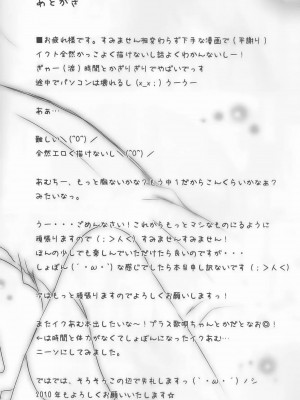 あとがき
■お疲れ様です。すみません相変わらず下手な漫画で(平謝り)
イクト全然かっこよく描けないし話よくわかんないしー!
ぎゃー(涙)時間とかぎりぎりでやばいでっす
途中でパソコンは壊れるし(x_x;)うーうー
ああ…
難しい＼(^0^)／
全然エロく描けないし＼(^0^)／
あむちー、もっと胸ないかな?もう中1だからこんくらいかなあ?
みたいなっ。
うー・・・ごめんなさい!これからもっとマシなものにるように
頑張りますので(;＞人＜)すみませんすみません!
ほんの少しでも楽しんでいただけたら良いのですが・・・
しょぼん(´・ω・`)な感じでしたら本当申し訳ないです(;＞人＜)
ではもっと頑張りますのでよろしくお願いしますっ!
またイクあむ本出したいな~!プラス歌唄ちゃんとかだとなお◎!
←は時間と体力がなくてしょぼんになったイクあむ…
ニーソにしてみました。
ではでは、そろそろこの辺で失礼しますっ(´・ω・`)ノシ
2010年もよろしくお願いいたします☆